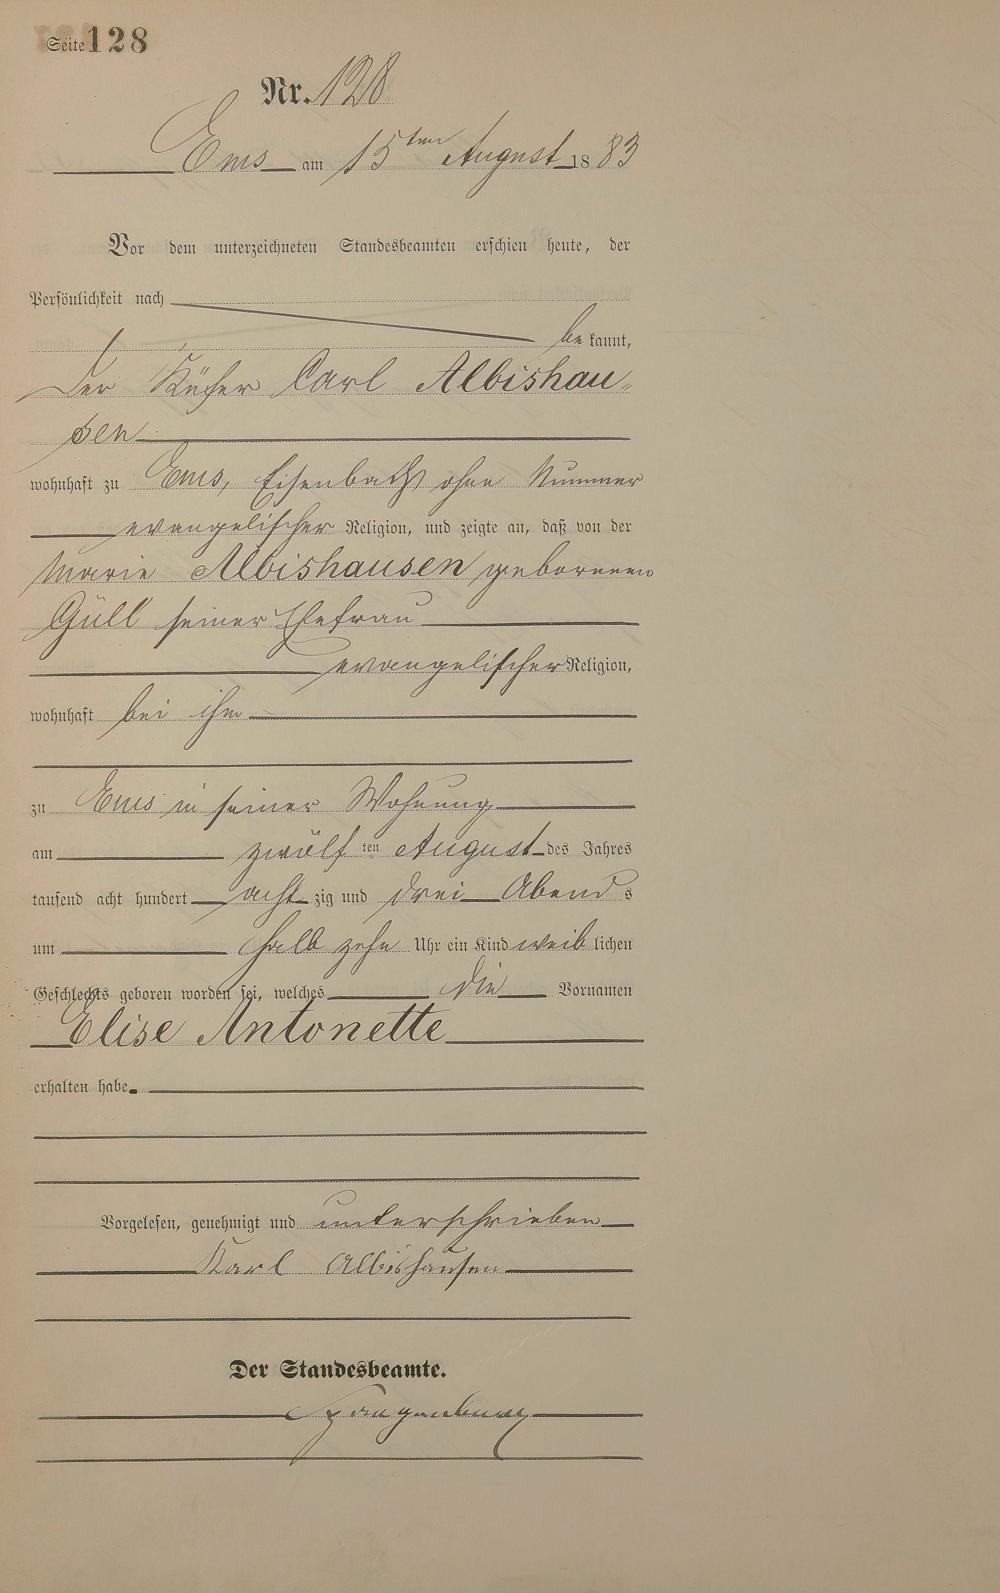 Seite 128
Nr. 128
Ems am 15ten August 1883
Vor dem unterzeichneten Standesbeamten erschien heute, der
Persönlichkeit nach
bekannt,
der Küfer Carl Albishau-
sen
wohnhaft zu Ems, Eisenbach ohne Nummer
evangelischer Religion, und zeigte an, daß von der
Marie Albishausen geborenen
Güll seiner Ehefrau
evangelischer Religion,
wohnhaft bei ihm
zu Ems in seiner Wohnung
am zwölf ten August des Jahres
tausend acht hundert acht zig und drei Abends
um halb zehn Uhr ein Kind weiblichen
Geschlechts geboren worden sei, welches die Vornamen
Elise Antonette
erhalten habe.
Vorgelesen, genehmigt und unterschrieben
Karl Albishausen
Der Standesbeamte.
Spangenberg